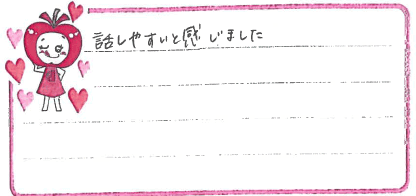 話しやすいと感じました